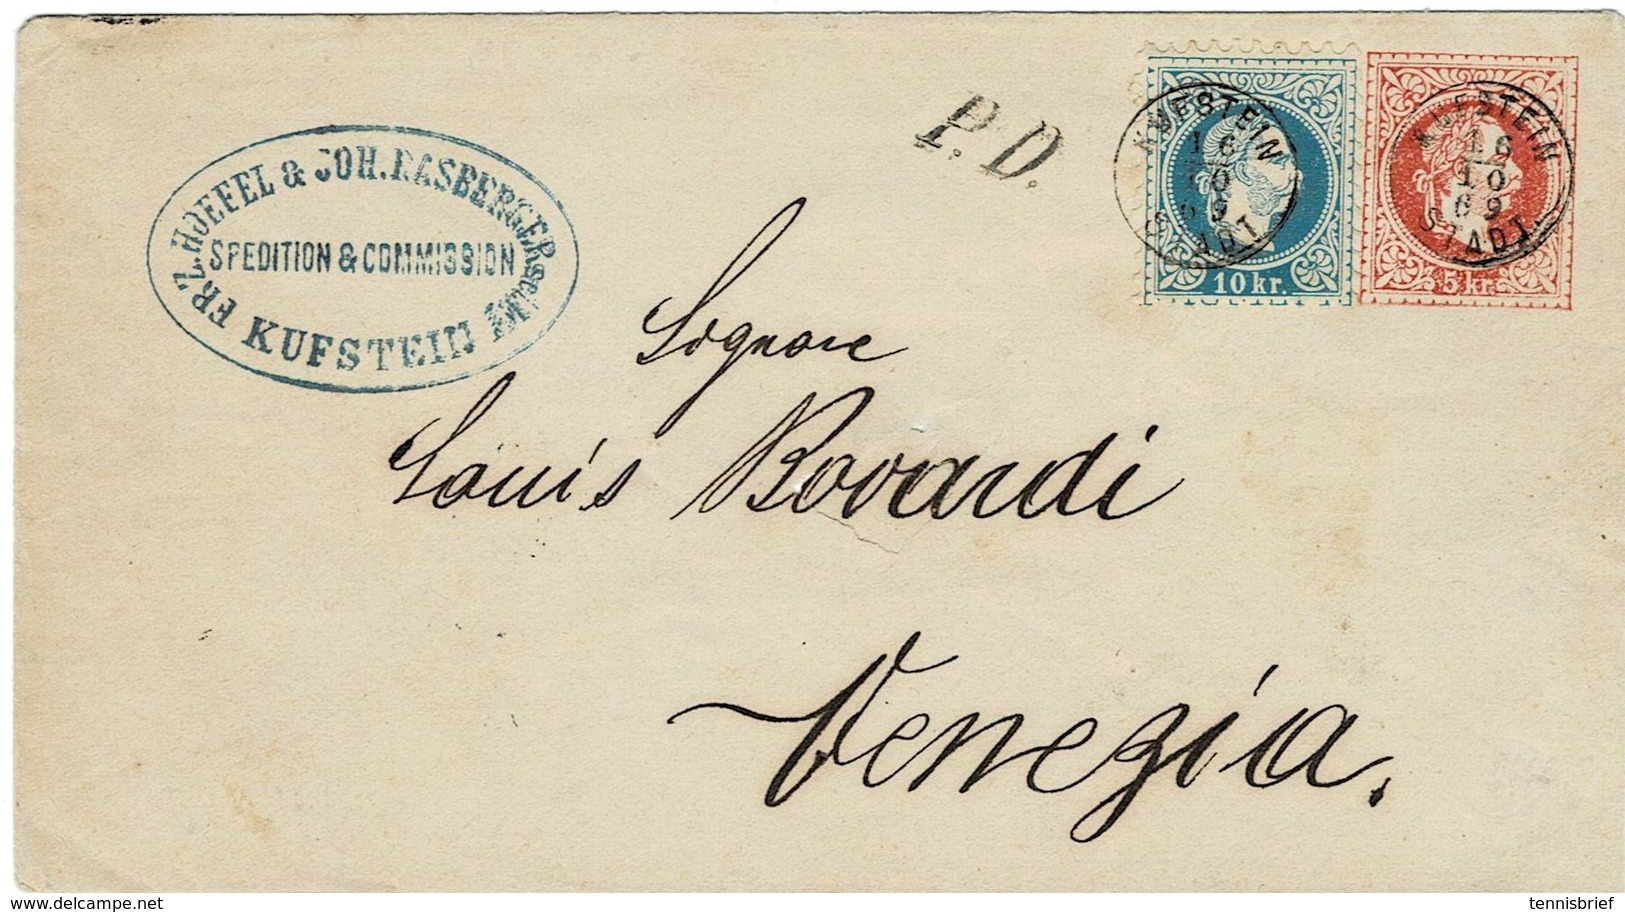 P. D.
KUFSTEIN
16
10
69
STADT
10 kr.
KUFSTEIN
16
10
69
STADT
5 kr.
FRZ. HOEFEL & JOH. RASBERGER
SPEDITION & COMMISSION
KUFSTEIN
Signore
Louis Bovardi
Venezia.
www.delcampe.net
tennisbrief